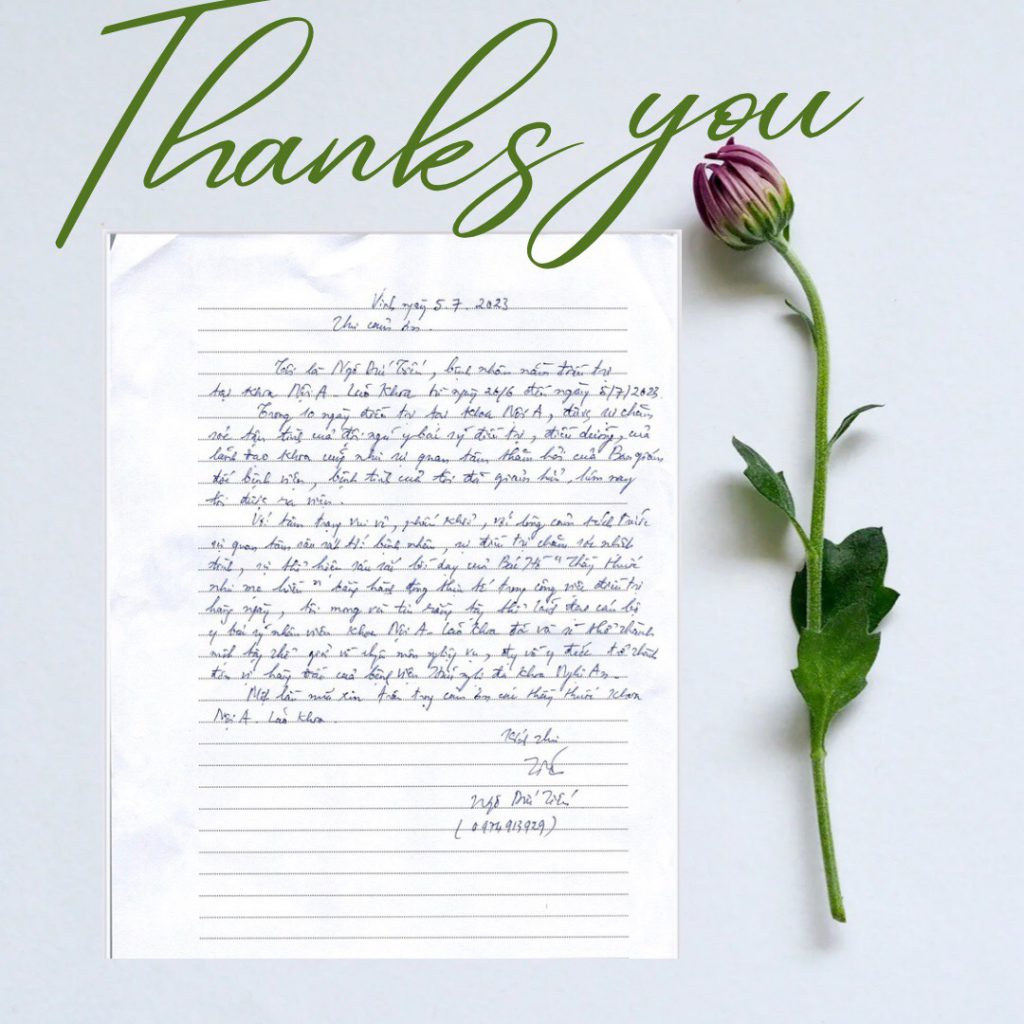 Thanks you
Vinh ngày 5.7.2023
Thư cảm ơn.
Tôi là Ngô Đức Tiến, bệnh nhân nằm điều trị
tại khoa Nội A - Lão Khoa từ ngày 26/6 đến ngày 5/7/2023
Trong 10 ngày điều trị tại khoa Nội A, được sự chăm
sóc tận tình của đội ngũ y bác sỹ điều trị, điều dưỡng, của
lãnh đạo khoa cũng như sự quan tâm thăm hỏi của Ban giám
đốc bệnh viện, bệnh tình của tôi đã giảm hẳn, hôm nay
tôi được ra viện.
Với tâm trạng vui vẻ, phấn khởi, với lòng cảm kích trước
sự quan tâm sâu sát tới bệnh nhân, sự điều trị chăm sóc nhiệt
tình, sự thể hiện sâu sắc lời dạy của Bác Hồ "Thầy thuốc
như mẹ hiền" bằng hành động thực tế trong công việc điều trị
hàng ngày, tôi mong và tin rằng tập thể lãnh đạo cán bộ
y bác sỹ nhân viên khoa Nội A - Lão Khoa đã và sẽ trở thành
một tập thể giỏi về chuyên môn nghiệp vụ, đẹp về y đức
đơn vị hàng đầu của bệnh viện Hữu nghị đa khoa Nghệ An.
Một lần nữa xin trân trọng cảm ơn các thầy thuốc khoa
Nội A - Lão Khoa.
Kính thư
Ngô Đức Tiến
(0974913929)